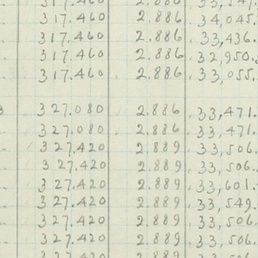 317.460 2.886 33,247.
317.460 2.886 34,045.
317.460 2.886 33,436.
317.460 2.886 32,950.
317.460 2.886 33,055.
327.080 2.886 33,471.
327.080 2.886 33,471.
327.420 2.889 33,506.
327.420 2.889 33,506.
327.420 2.889 33,601.
327.420 2.889 33,549.
327.420 2.889 33,506.
327.420 2.889 33,506.
327.420 2.889 33,506.